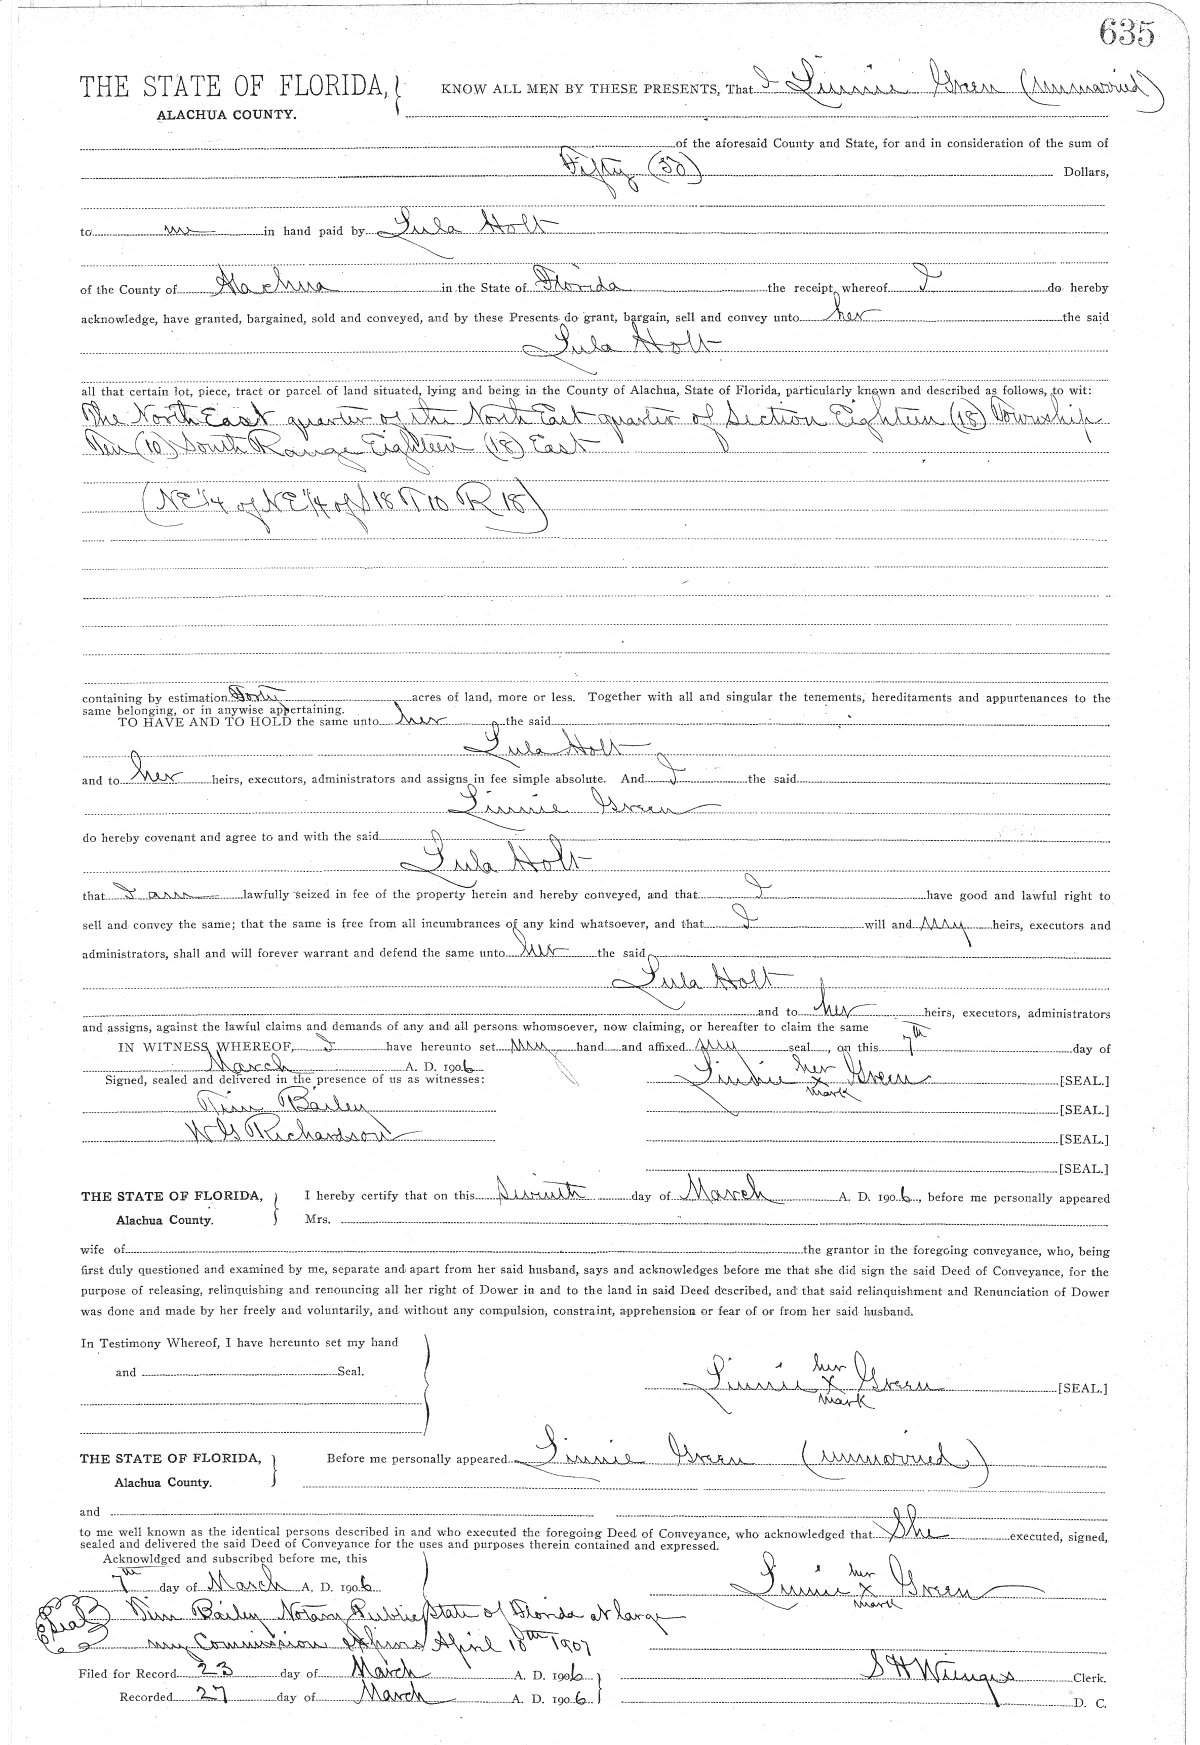 635
THE STATE OF FLORIDA, } KNOW ALL MEN BY THESE PRESENTS, That I Linnie Green (unmarried)
ALACHUA COUNTY.
of the aforesaid County and State, for and in consideration of the sum of
Fifty (50) Dollars,
to me in hand paid by Lula Holt
of the County of Alachua in the State of Florida the receipt whereof I do hereby
acknowledge, have granted, bargained, sold and conveyed, and by these Presents do grant, bargain, sell and convey unto her the said
Lula Holt
all that certain lot, piece, tract or parcel of land situated, lying and being in the County of Alachua, State of Florida, particularly known and described as follows, to wit:
The North East quarter of the North East quarter of Section Eighteen (18) Township
Ten (10) South Range Eighteen (18) East
(NE 1/4 of NE 1/4 of S 18 T 10 R 18)
containing by estimation Forty acres of land, more or less. Together with all and singular the tenements, hereditaments and appurtenances to the
same belonging, or in anywise appertaining.
TO HAVE AND TO HOLD the same unto her the said
Lula Holt
and to her heirs, executors, administrators and assigns in fee simple absolute. And I the said
Linnie Green
do hereby covenant and agree to and with the said
Lula Holt
that I am lawfully seized in fee of the property herein and hereby conveyed, and that I have good and lawful right to
sell and convey the same; that the same is free from all incumbrances of any kind whatsoever, and that I will and my heirs, executors and
administrators, shall and will forever warrant and defend the same unto her the said
Lula Holt
and to her heirs, executors, administrators
and assigns, against the lawful claims and demands of any and all persons whomsoever, now claiming, or hereafter to claim the same
IN WITNESS WHEREOF, I have hereunto set my hand and affixed my seal, on this 7th day of
March A. D. 1906 Linnie her x mark Green [SEAL.]
Signed, sealed and delivered in the presence of us as witnesses:
Tim Bailey [SEAL.]
W G Richardson [SEAL.]
[SEAL.]
THE STATE OF FLORIDA, } I hereby certify that on this Seventh day of March A. D. 1906, before me personally appeared
Alachua County. Mrs.
wife of the grantor in the foregoing conveyance, who, being
first duly questioned and examined by me, separate and apart from her said husband, says and acknowledges before me that she did sign the said Deed of Conveyance, for the
purpose of releasing, relinquishing and renouncing all her right of Dower in and to the land in said Deed described, and that said relinquishment and Renunciation of Dower
was done and made by her freely and voluntarily, and without any compulsion, constraint, apprehension or fear of or from her said husband.
In Testimony Whereof, I have hereunto set my hand
and Seal. Linnie her x mark Green [SEAL.]
THE STATE OF FLORIDA, } Before me personally appeared Linnie Green (unmarried)
Alachua County.
and
to me well known as the identical persons described in and who executed the foregoing Deed of Conveyance, who acknowledged that She executed, signed,
sealed and delivered the said Deed of Conveyance for the uses and purposes therein contained and expressed.
Acknowldged and subscribed before me, this
7th day of March A. D. 1906 Linnie her x mark Green
Seal Tim Bailey Notary Public State of Florida at large
my Commission expires April 18th 1907
Filed for Record 23 day of March A. D. 1906 S H Wienges Clerk.
Recorded 27 day of March A. D. 1906 D. C.